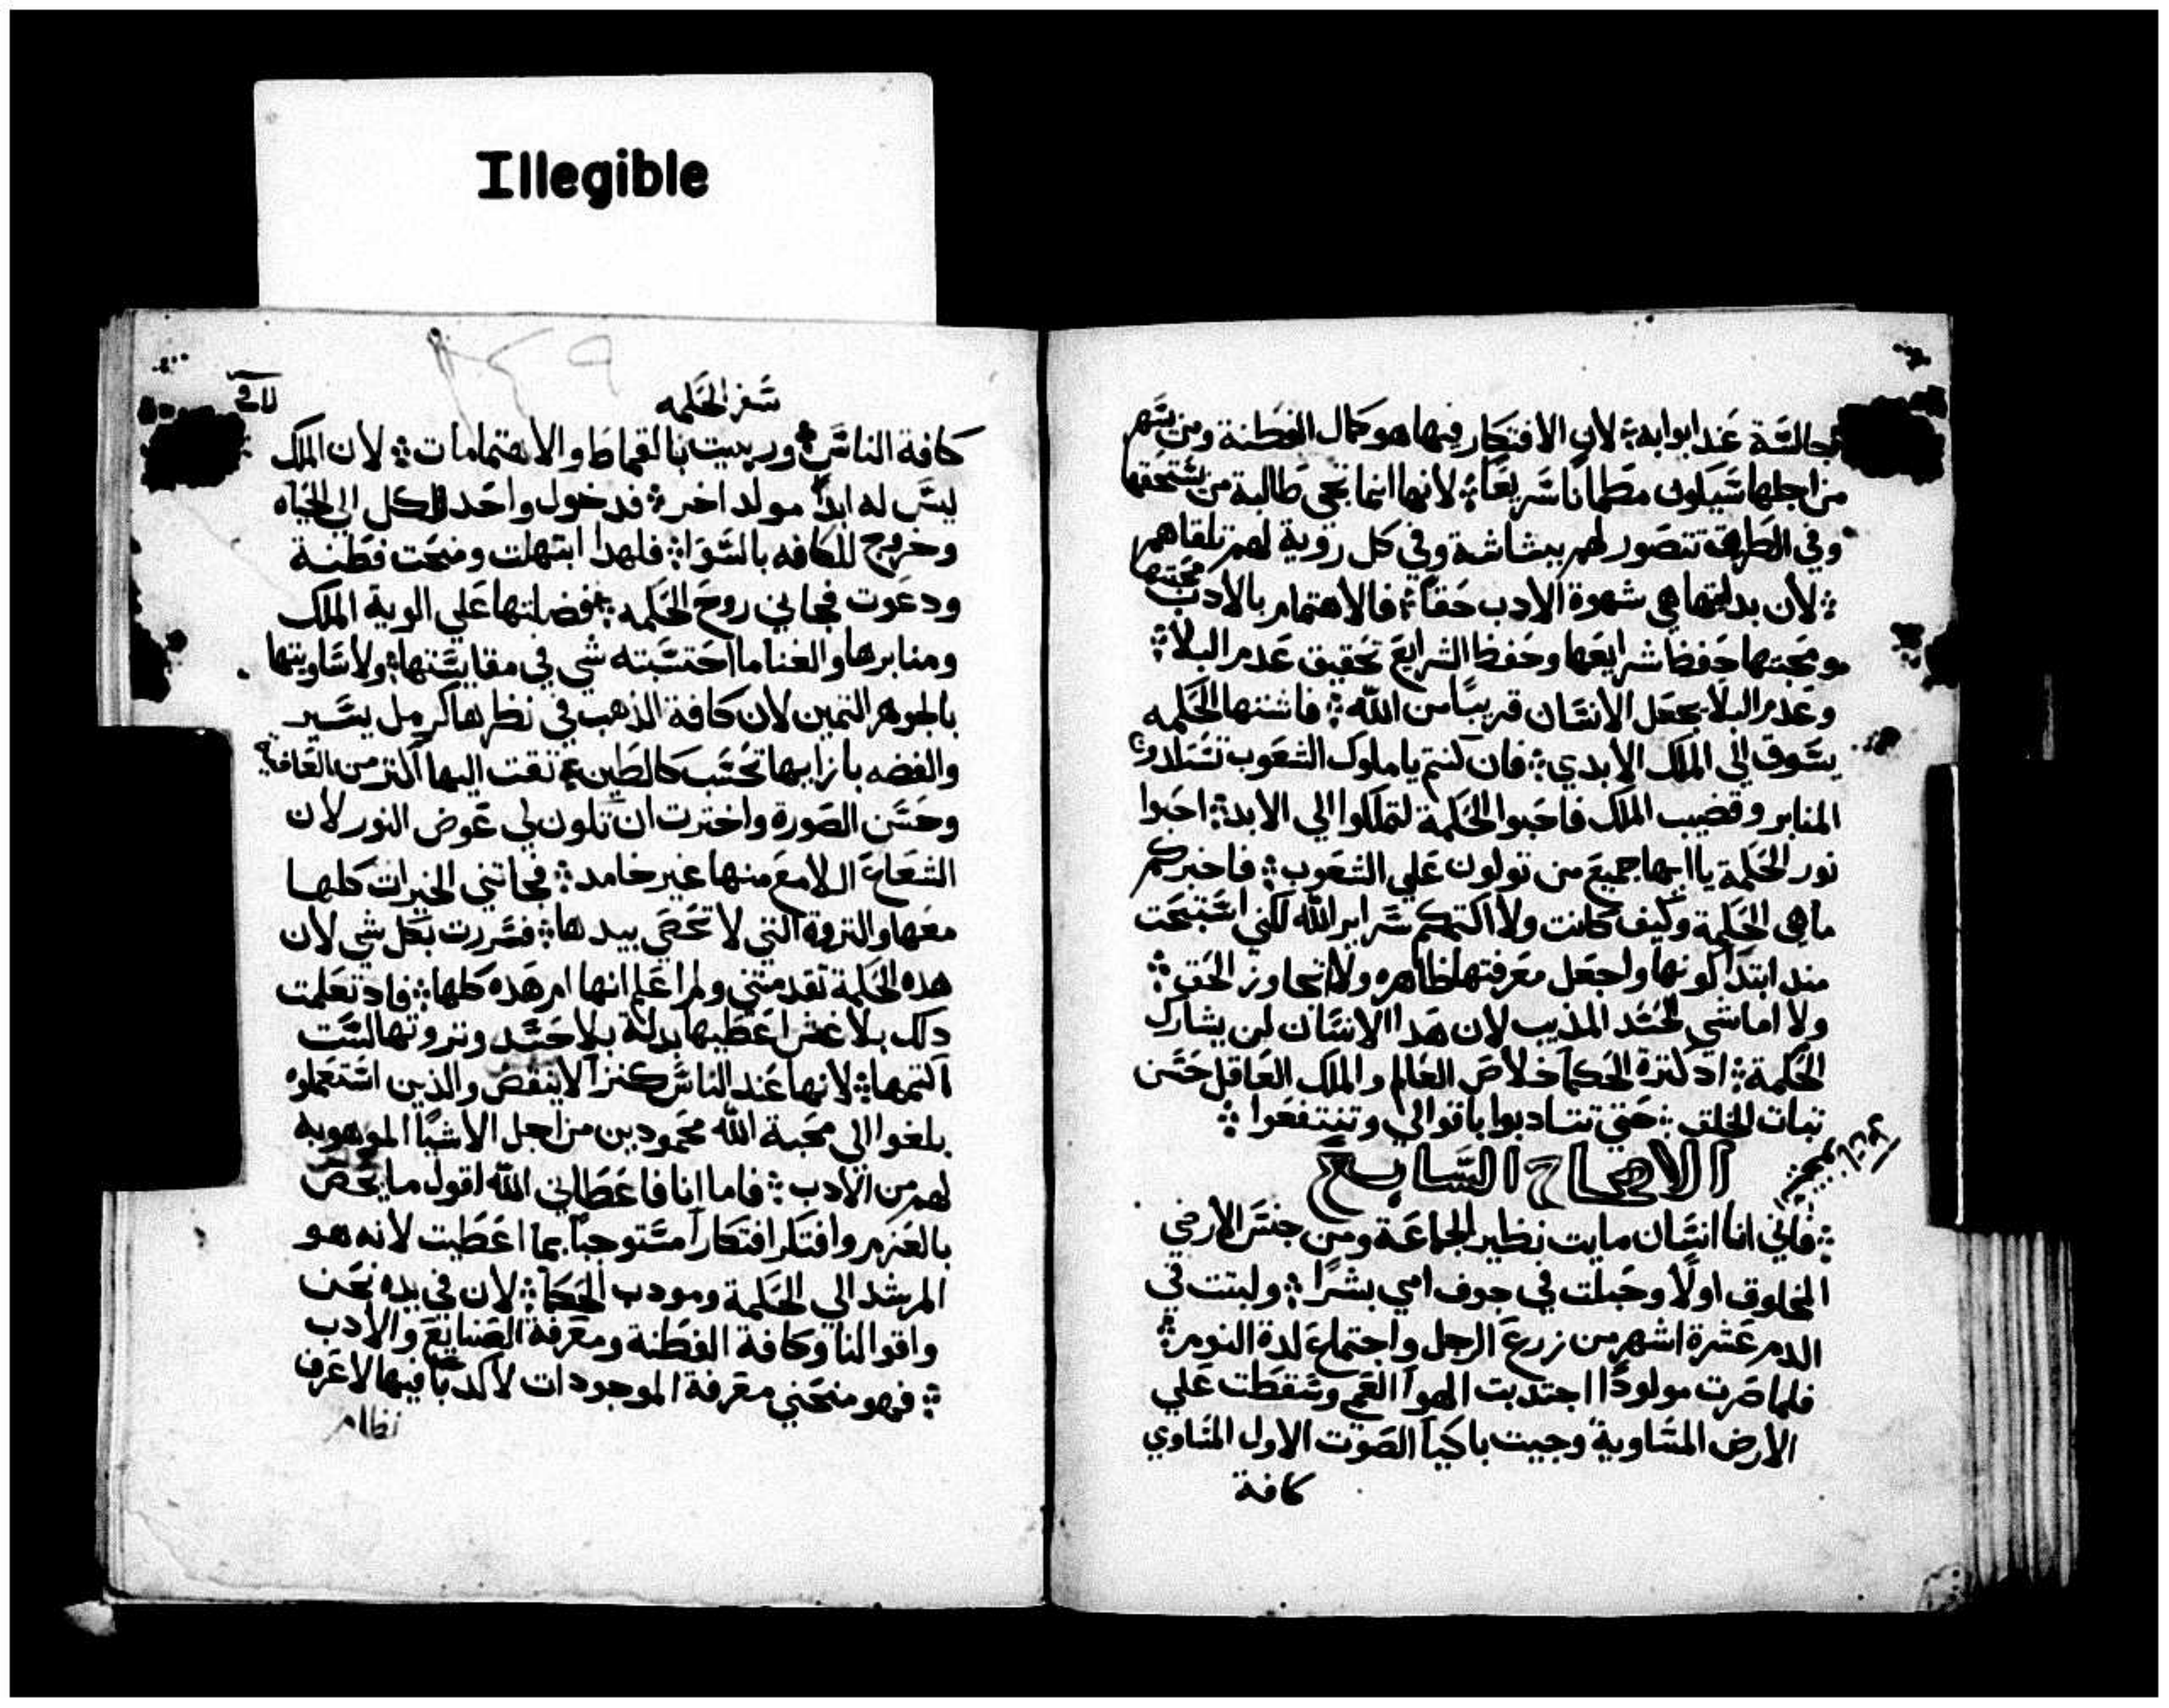 Illegible
جالسة عند ابوابه لان الافتكار فيها هو كمال الفطنة ومن يسهر
من اجلها سيكون مطمانا سريعا لانها انما تجي طالبة من يستحقها
وفي الطرق تتصور لهم ببشاشة وفي كل روية لهم تلقاهم
لان بدايتها هي شهوة الادب حقا فالاهتمام بالادب محبتها
ومحبتها حفظ شرايعها وحفظ الشرايع تحقيق عدم البلا
وعدم البلا يجعل الانسان قريبا من الله فاشتها الحكمه
يسوق الي الملك الابدي فان كنتم يا ملوك الشعوب تستلدوا
المنابر وقضيب الملك فاحبوا الحكمة لتملكوا الي الابد احبوا
نور الحكمة يا ايها جميع من تولون علي الشعوب فاخبركم
ما هي الحكمة وكيف كانت ولا اكتمكم سراير الله لكني استبحت
مند ابتدا كونها واجعل معرفتها ظاهره ولا اتجاوز الحق
ولا اماشي الحسد المذيب لان هدا الانسان لن يشارك
الحكمة اد كترة الحكما خلاص العالم والملك العاقل حسن
تبات الخلق حتي تتادبوا باقوالي وتنتفعوا
الاصحاح السابع
فاني انا انسان مايت نظير الجماعة ومن جنس الارضي
المخلوق اولا وحبلت في جوف امي بشرا ولبتت في
الدم عشرة اشهر من زرع الرجل واجتماع لدة النوم
فلما صرت مولودا اجتدبت الهوا العم وسقطت علي
الارض المساوية وجيت باكيا الصوت الاول المساوي
كافة
سفر الحكمه
كافة الناس وربيت بالقماط والاهتمامات لان الملك
ليس له ابدا مولد اخر فدخول واحد للكل الي الحياه
وخروج للكافه بالسوا فلهدا ابتهلت ومنحت فطنة
ودعوت فجاني روح الحكمه ففضلتها علي الوية الملك
ومنابرها والغنا ما احتسبته شي في مقايستها ولا ساويتها
بالجوهر التمين لان كافة الذهب في نظرها كرمل يسير
والفضه بازايها تحسب كالطين تقت اليها اكتر من العافية
وحسن الصورة واخترت ان تكون لي عوض النور لان
الشعاع اللامع منها غير خامد فجاتني الخيرات كلها
معها والتروة التي لا تحصي بيدها فسررت بكل شي لان
هذه الحكمة تقدمتني ولم اعلم انها ام هده كلها فاد تعلمت
دلك بلا غش اعطيها بدلة بلا حسد وتروتها لست
اكتمها لانها عند الناس كنزا لا ينقص والذين استعملوه
بلغوا الي محبة الله محمودين من اجل الاشيا الموهوبه
لهم من الادب فاما انا فاعطاني الله اقول ما يخص
بالعزم وافتكر افتكارا مستوجبا بما اعطيت لانه هو
المرشد الي الحكمة ومودب الحكما لان في يده نحن
واقوالنا وكافة الفطنة ومعرفة الصنايع والادب
فهو منحني معرفة الموجودات لا كدبا فيها لاعرف
نظام